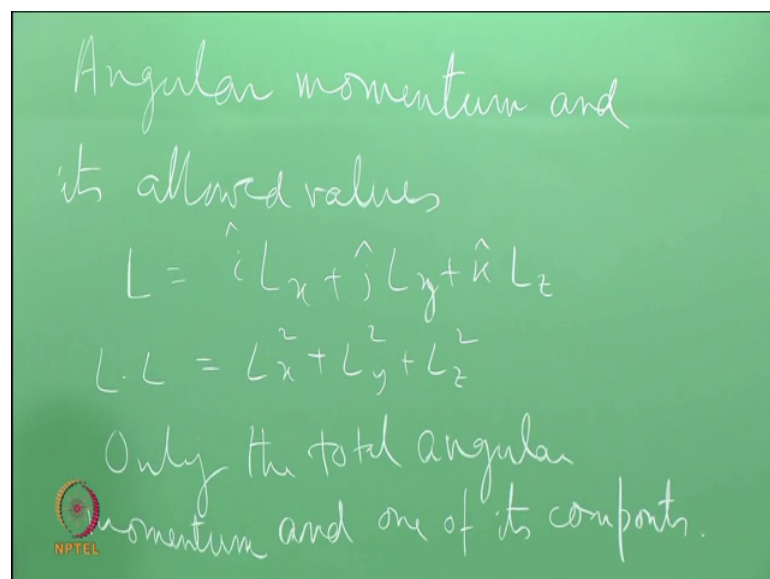 Angular momentum and
its allowed values
L = î Lx + ĵ Ly + k̂ Lz
L.L = Lx² + Ly² + Lz²
Only the total angular
momentum and one of its componts.
NPTEL